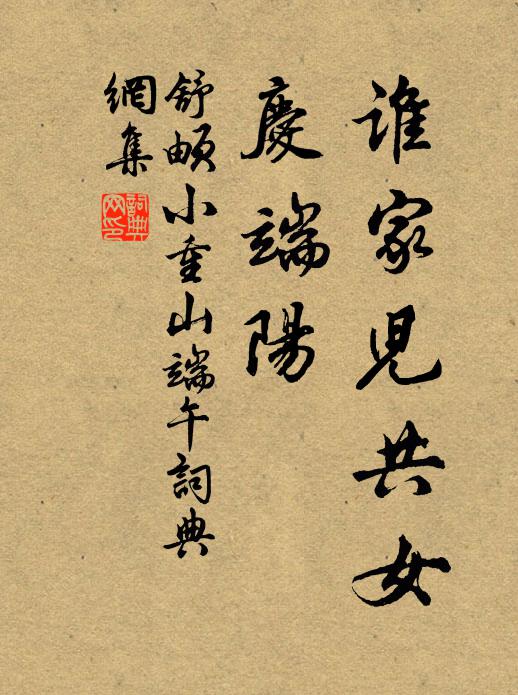 誰家児共女
慶端陽
舒頔小重山端午詞典
網集
詞典
网印